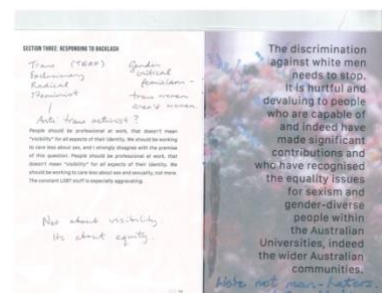 SECTION THREE: RESPONDING TO BACKLASH
Trans (TERF)
Exclusionary
Radical
Feminist
Gender
critical
feminism -
trans women
aren't women
Anti trans activist?
People should be professional at work, that doesn't mean
"visibility" for all aspects of their identity. We should be working
to care less about sex, and I strongly disagree with the premise
of this question. People should be professional at work, that
doesn't mean "visibility" for all aspects of their identity. We
should be working to care less about sex and sexuality, not more.
The constant LGBT stuff is especially aggravating.
Not about visibility
Its about equity.
The discrimination
against white men
needs to stop.
It is hurtful and
devaluing to people
who are capable of
and indeed have
made significant
contributions and
who have recognised
the equality issues
for sexism and
gender-diverse
people within
the Australian
Universities, indeed
the wider Australian
communities.
not man-haters.